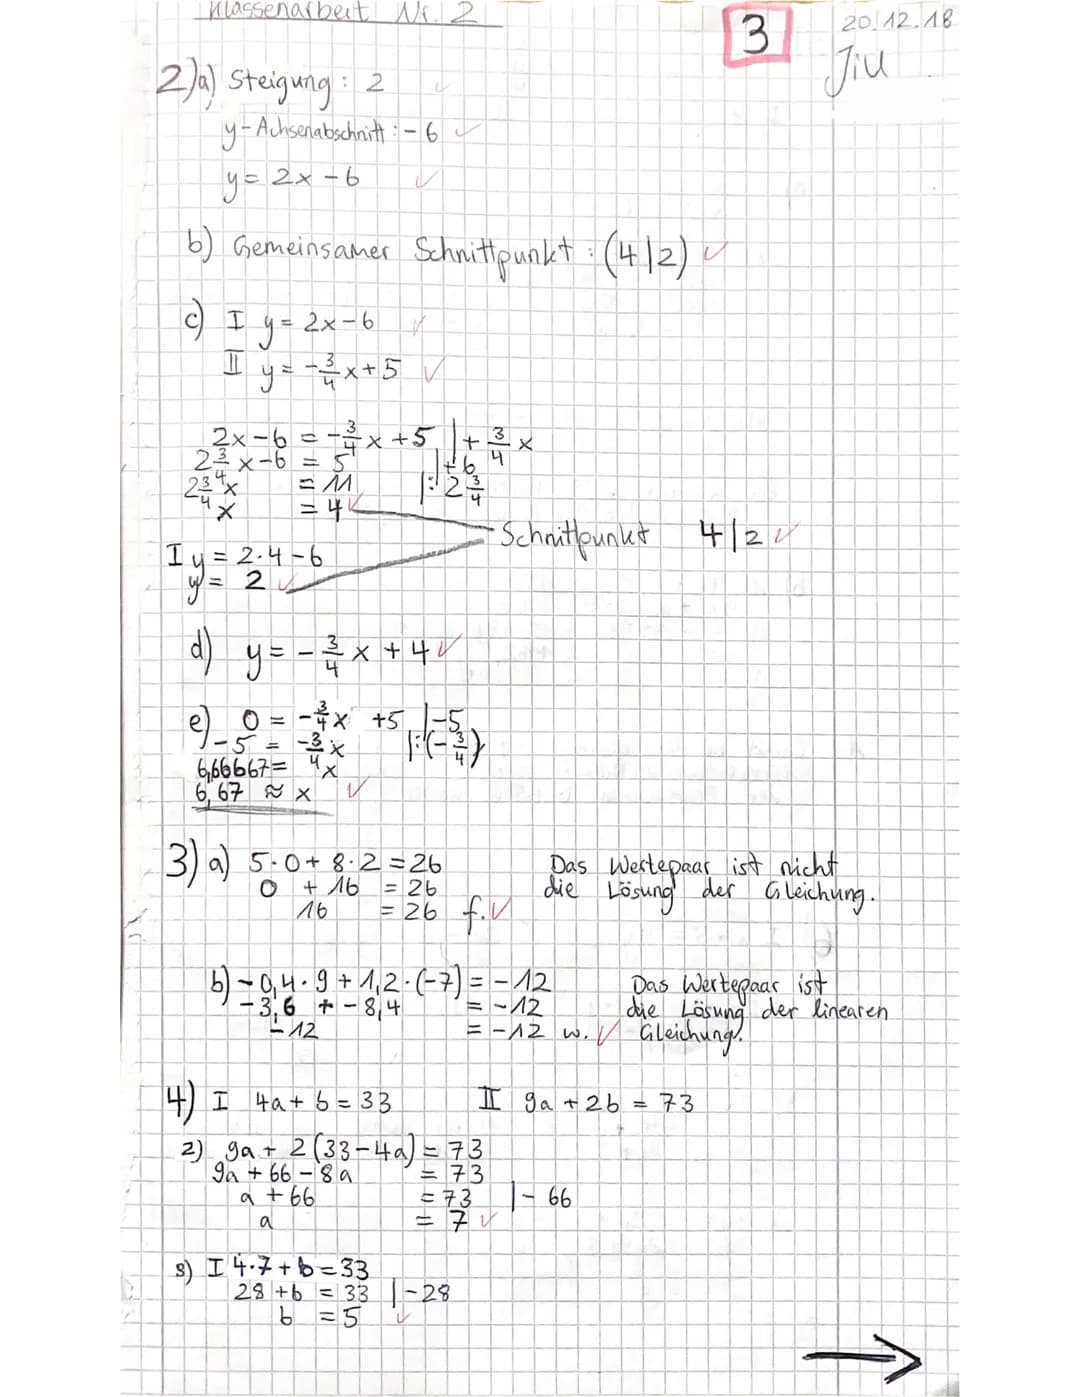 Klassenarbeit Nr. 2
3
20.12.18
Jill
2)a) Steigung: 2
y-Achsenabschnitt: -6
y= 2x -6
b) Gemeinsamer Schnittpunkt: (4|2)
c) I y= 2x-6
II y= -3/4 x+5
2x-6 = -3/4 x +5 |+ 3/4 x
2 3/4 x-6 = 5 |+6
2 3/4 x = 11 |: 2 3/4
x = 4
Schnittpunkt 4|2
I y= 2·4-6
y= 2
d) y= - 3/4 x + 4
e) 0 = -3/4 x +5 |-5
-5 = -3/4 x |:(-3/4)
6,66667= x
6,67 ≈ x
3) a) 5·0+ 8·2 = 26 Das Wertepaar ist nicht
0 + 16 = 26 die Lösung der Gleichung.
16 = 26 f.
b) -0,4·9 + 1,2·(-7) = -12 Das Wertepaar ist
-3,6 + -8,4 = -12 die Lösung der linearen
-12 = -12 w. Gleichung.
4) I 4a+ b = 33 II 9a +2b = 73
2) 9a + 2(33-4a) = 73
9a + 66 - 8a = 73
a + 66 = 73 |- 66
a = 7
3) I 4·7+b=33
28 +b = 33 |-28
b = 5